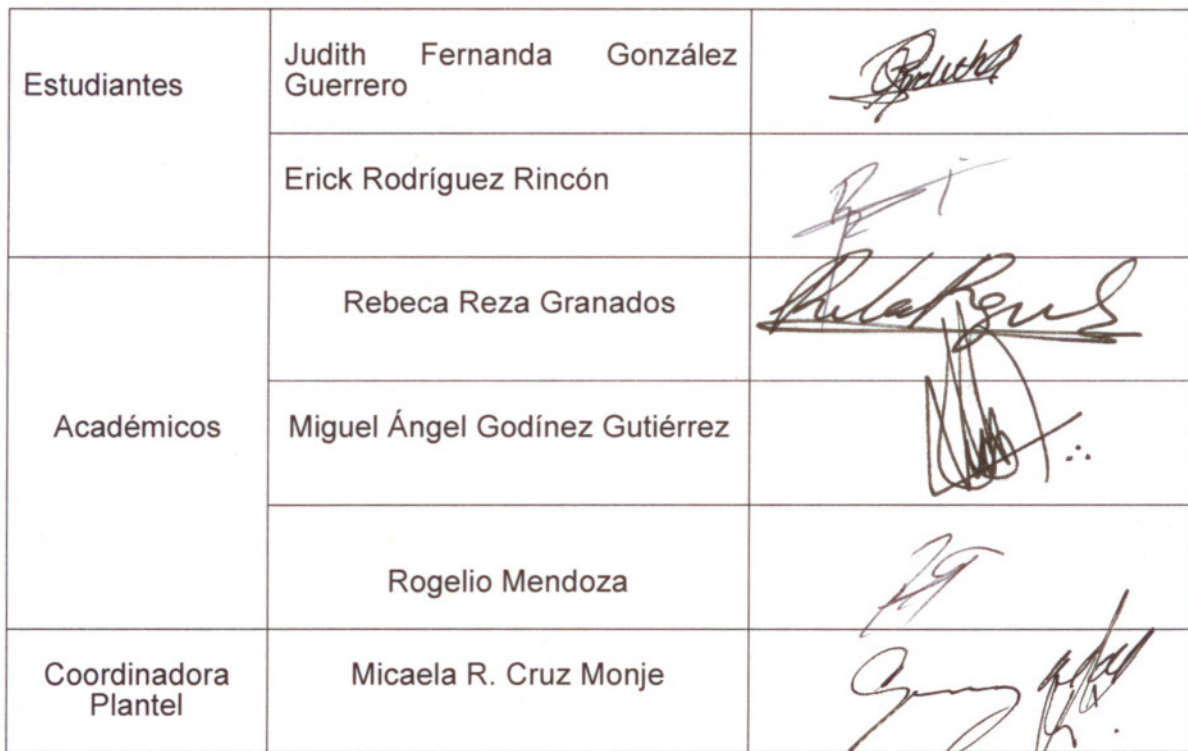 Estudiantes
Judith Fernanda González
Guerrero
Erick Rodríguez Rincón
Académicos
Rebeca Reza Granados
Miguel Ángel Godínez Gutiérrez
Rogelio Mendoza
Coordinadora
Plantel
Micaela R. Cruz Monje